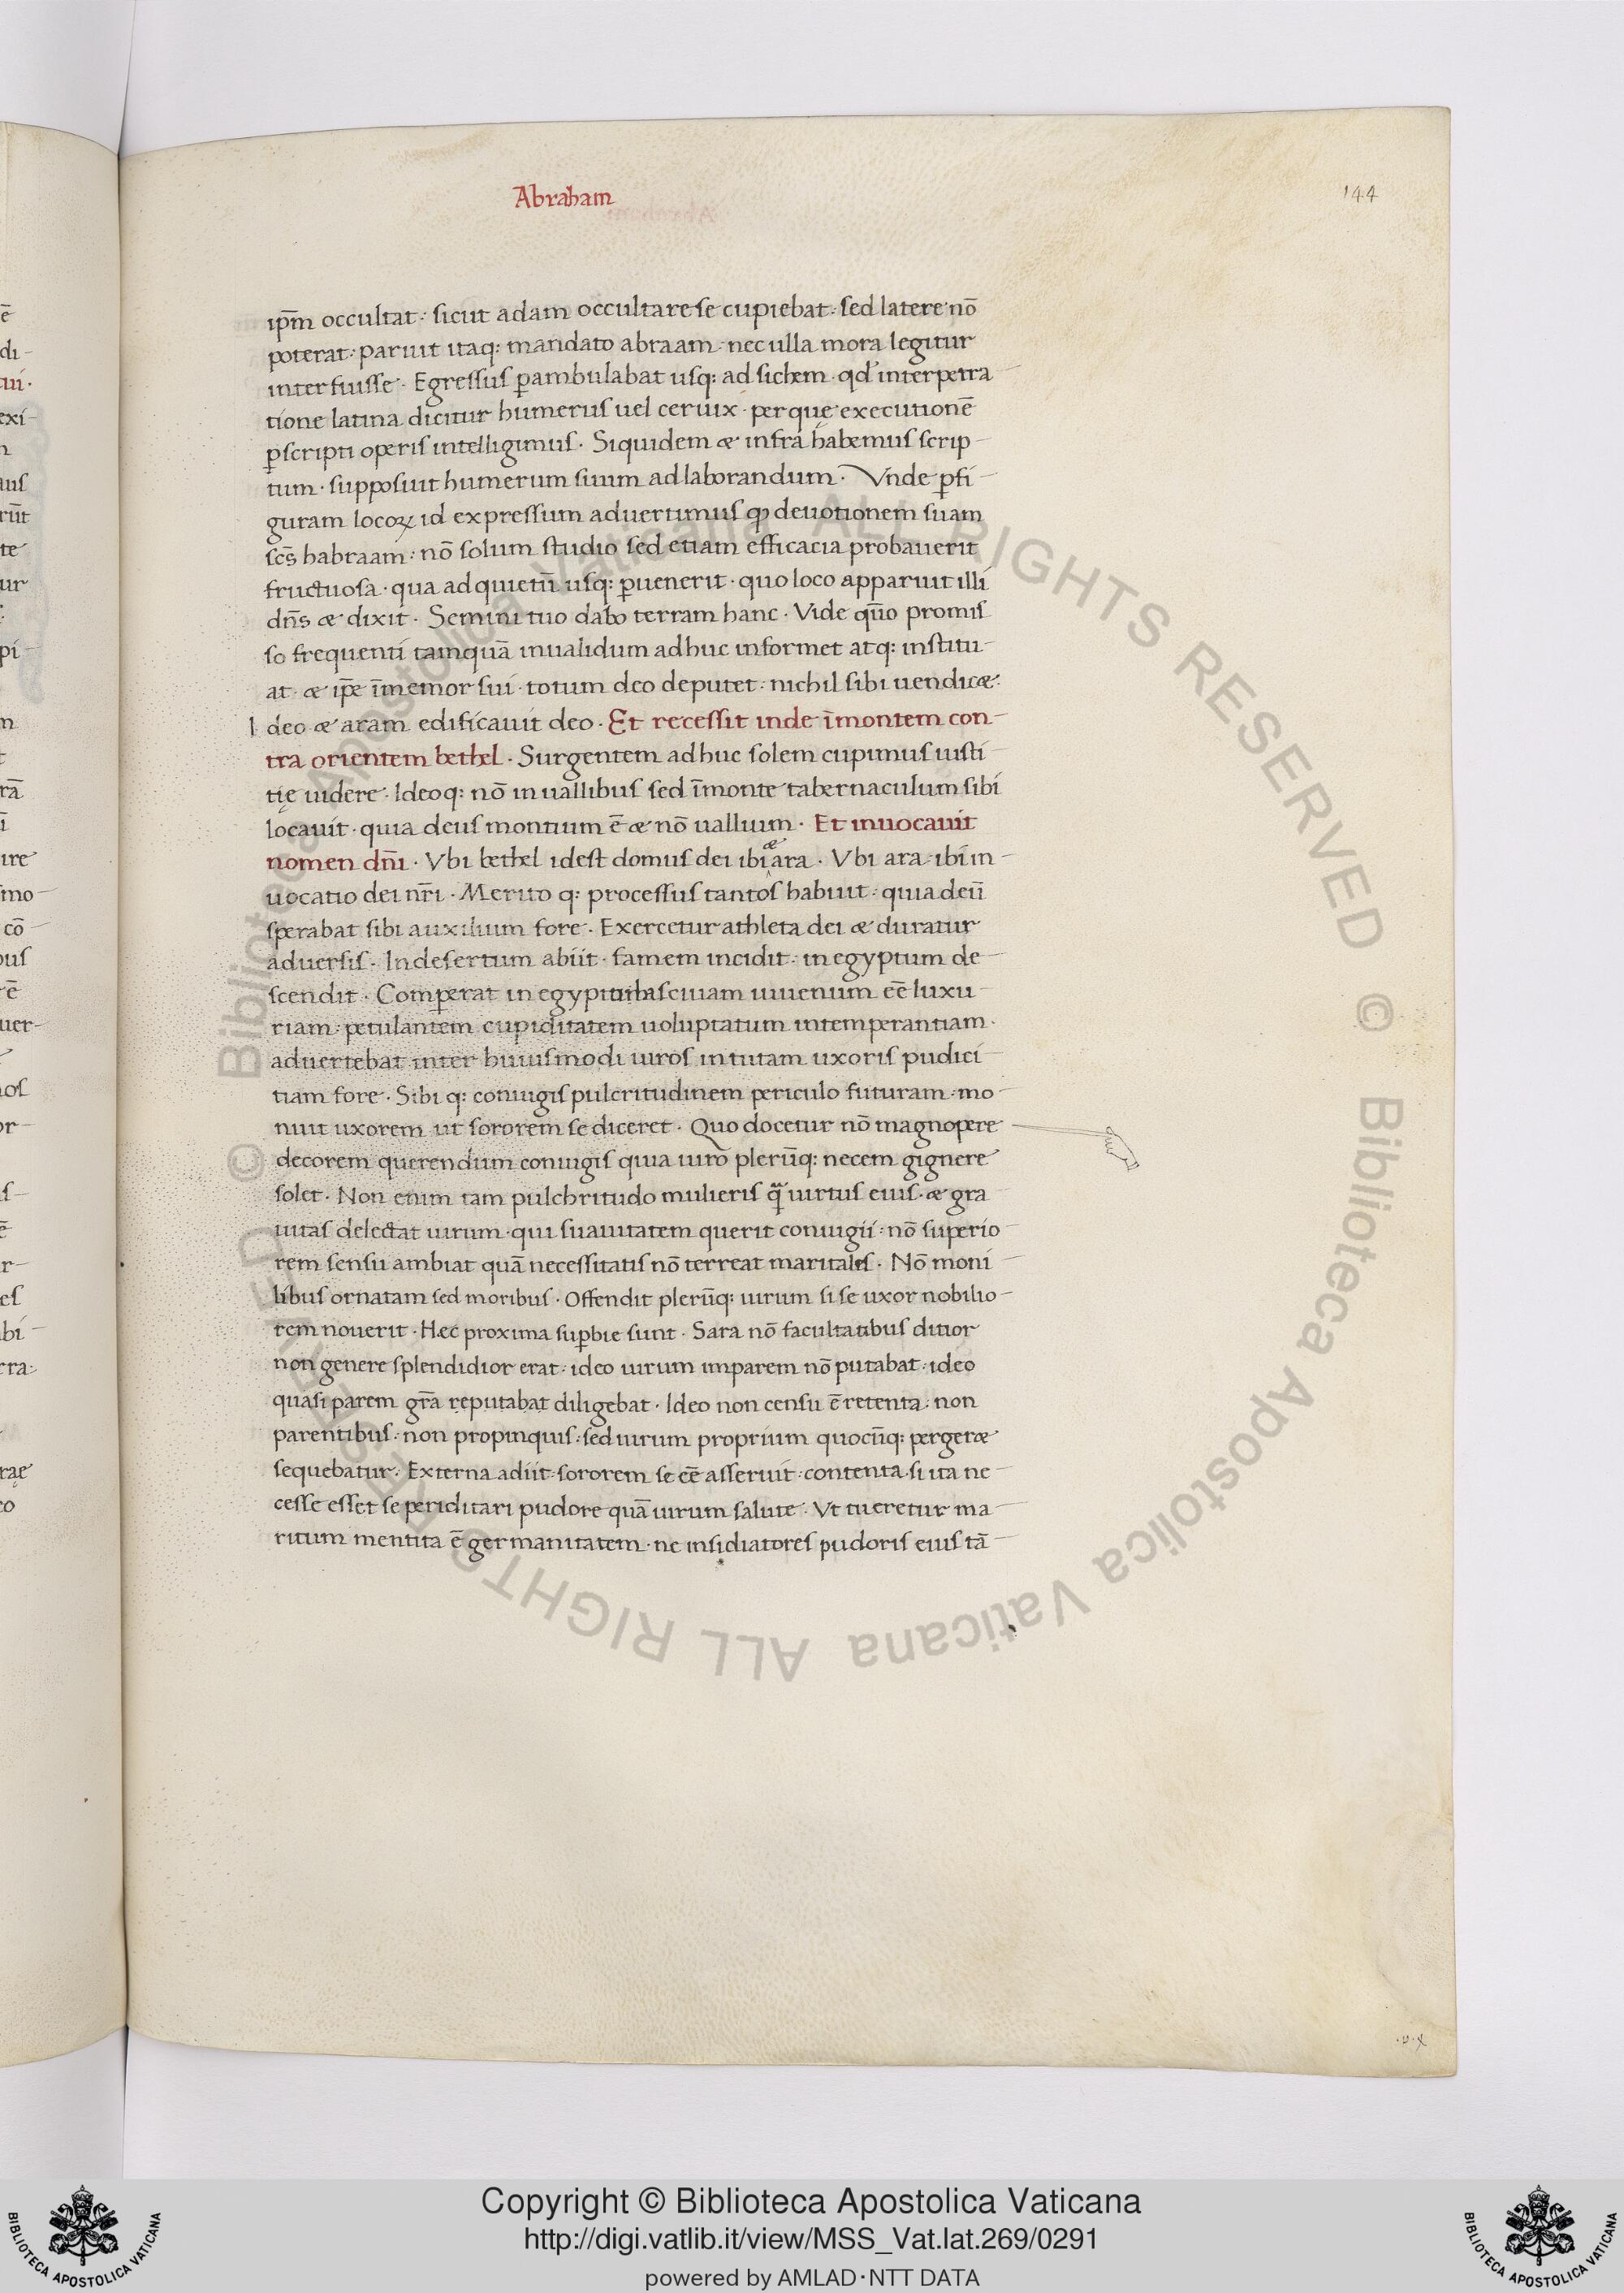 Abraham
144
ip̄m occultat: sicut adam occultare se cupiebat: sed latere nō
poterat: paruit itaq: mandato abraam: nec ulla mora legitur
inter fuisse. Egressus ꝑambulabat usq: ad sichem. qd' interpetra
tione latina dicitur humerus uel ceruix. per que executionē
p̄scripti operis intelligimus. Siquidem æ infra habemus scrip-
tum. supposuit humerum suum ad laborandum. Vnde p̄fi-
guram locoꝝ id expressum aduertimus ꝙ deuotionem suam
scs̄ habraam: nō solum studio sed etiam efficacia probauerit
fructuosa. qua ad quietū usq: ꝑuenerit. quo loco apparuit illi
dn̄s æ dixit. Semini tuo dabo terram hanc. Vide qūo promis
so frequenti tamquā inualidum adhuc informet atq: institu-
at. æ ip̄e īmemor sui. totum deo deputet: nichil sibi uendicæ.
I deo æ aram edificauit deo. Et recessit inde īmontem con-
tra orientem bethel. Surgentem adhuc solem cupimus iusti
tię uidere. Ideoq: nō in uallibus sed īmonte tabernaculum sibi
locauit. quia deus montium ē æ nō uallium. Et inuocauit
nomen dn̄i. Vbi bethel idest domus dei ibi æ ara. Vbi ara: ibi in-
uocatio dei nr̄i. Merito q: processus tantos habuit: quia deū
sperabat sibi auxilium fore. Exercetur athleta dei æ duratur
aduersis. In desertum abiit. famem incidit: in egyptum de-
scendit. Comꝑerat in egypti lasciuiam iuuenum eē luxu
riam: petulantem cupiditatem uoluptatum intemperantiam.
aduertebat inter huiusmodi uiros intutam uxoris pudici
tiam fore. Sibi q: coniugis pulcritudinem periculo futuram. mo-
nuit uxorem ut sororem se diceret. Quo docetur nō magnopere
decorem querendum coniugis quia uiro plerūq: necem gignere
solet. Non enim tam pulchritudo mulieris q̄ uirtus eius. æ gra
uitas delectat uirum. qui suauitatem querit coniugii: nō superio
rem sensu ambiat quā necessitatis nō terreat maritalis. Nō moni
libus ornatam sed moribus. Offendit plerūq: uirum si se uxor nobilio-
rem nouerit. Hec proxima suꝑbie sunt. Sara nō facultatibus ditior
non genere splendidior erat: ideo uirum imparem nō putabat: ideo
quasi parem gr̄a reputabat diligebat. Ideo non censu ē retenta: non
parentibus: non propinquis: sed uirum proprium quocūq: pergeræ
sequebatur. Externa adiit. sororem se eē asseruit: contenta. si ita ne-
cesse esset se periclitari pudore quā uirum salute. Vt tueretur ma-
ritum mentita ē germanitatem. ne insidiatores pudoris eius tā-
© Biblioteca Apostolica Vaticana ALL RIGHTS RESERVED
© Biblioteca Apostolica Vaticana ALL RIGHTS RESERVED
Copyright © Biblioteca Apostolica Vaticana
http://digi.vatlib.it/view/MSS_Vat.lat.269/0291
powered by AMLAD·NTT DATA
BIBLIOTECA APOSTOLICA VATICANA
BIBLIOTECA APOSTOLICA VATICANA